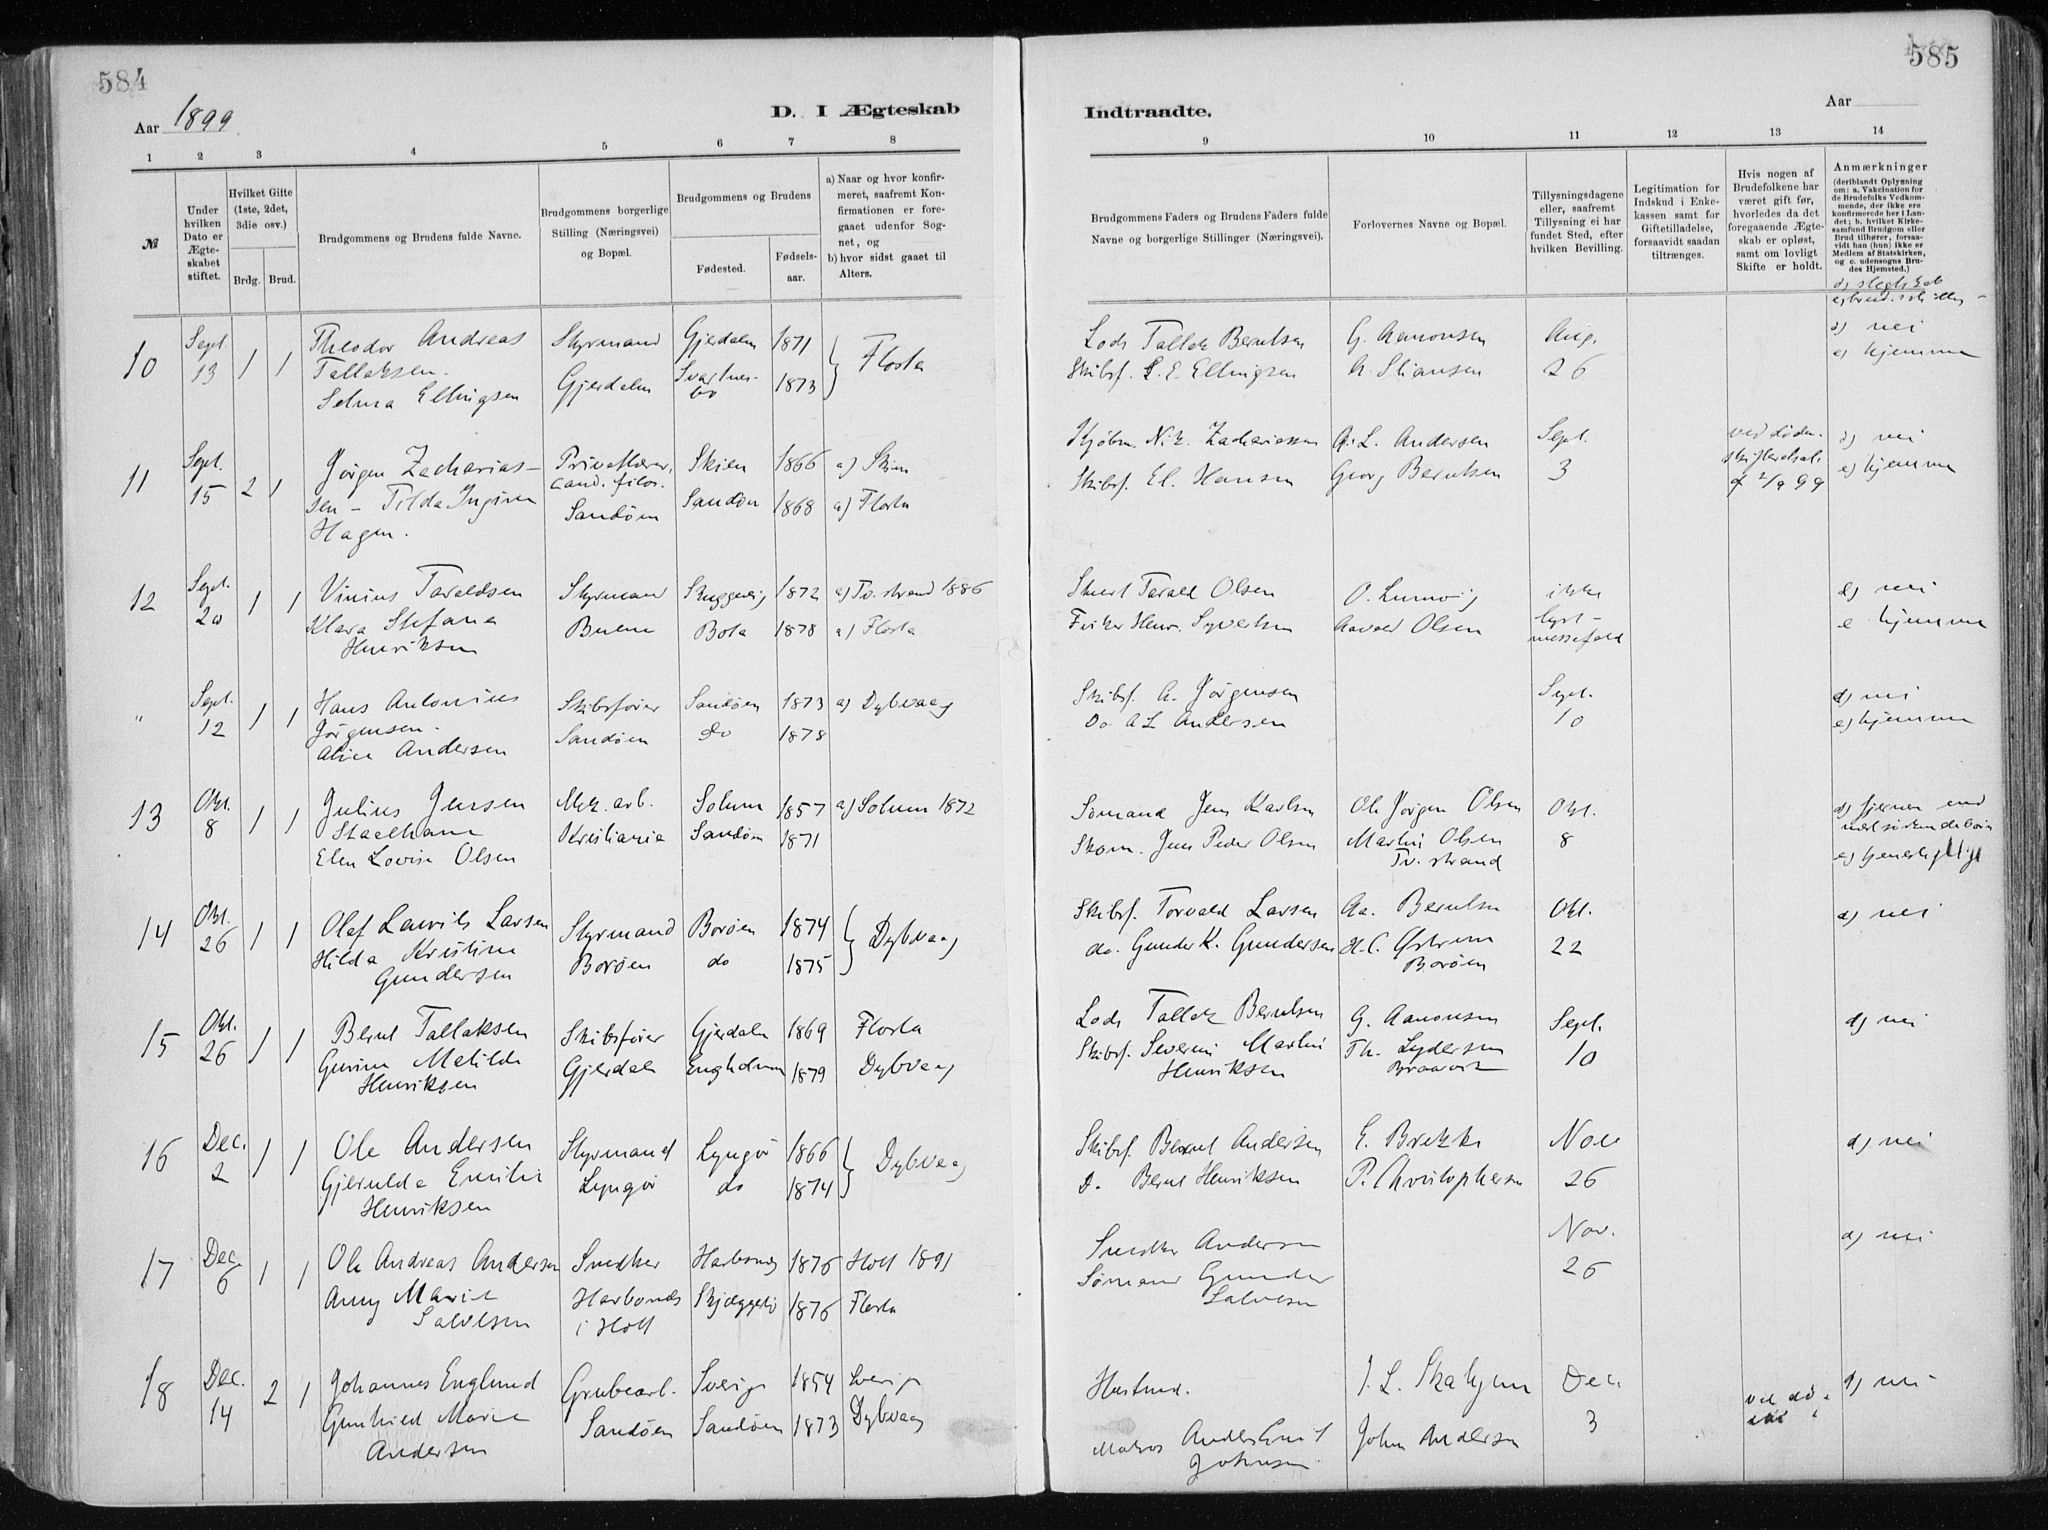 584
Aar 1899
D. I Ægteskab
1 2 3 4 5 6 7 8
№
Under hvilken Dato er Ægteskabet stiftet.
Hvilket Gifte (1ste, 2det, 3die osv.)
Brdg. Brud.
Brudgommens og Brudens fulde Navne.
Brudgommens borgerlige Stilling (Næringsvei) og Bopæl.
Brudgommens og Brudens
Fødested.
Fødselsaar.
a) Naar og hvor konfirmeret, saafremt Konfirmationen er foregaaet udenfor Sognet, og
b) hvor sidst gaaet til Alters.
10 Sept. 13 1 1 Theodor Andreas Tallaksen. Styrmand Gjerdalen 1871 Flosta
Selma Ellingsen Gjerdalen 1873
11 Sept. 15 2 1 Jørgen Zachariassen – Privatlærer, cand. filos. Skien 1866 a) Skien
Tilda Ingine Hagen. Sandøen Sandøen 1868 a) Flosta
12 Sept. 20 1 1 Vinius Taraldsen Styrmand 1872 a) Tv.strand 1886
Klara Stefana Henriksen Bota 1878 a) Flosta
" Sept. 12 1 1 Hans Antonius Jørgensen. Skibsfører Sandøen 1873 a) Dybvaag
Alice Andersen Sandøen do 1878
13 Okt. 8 1 1 Julius Jensen Mek. arb. Solum 1857 a) Solum 1872
Elen Lovise Olsen Kristiania Sandøen 1871
14 Okt. 26 1 1 Olaf Lauvits Larsen Styrmand Borøen 1874 Dybvaag
Hilda Kristine Gundersen Borøen do 1875
15 Okt. 26 1 1 Bernt Tallaksen Skibsfører Gjerdalen 1869 Flosta
Gurine Matilde Henriksen Gjerdalen Engholmen 1879 Dybvaag
16 Dec. 2 1 1 Ole Andersen Styrmand Lyngør 1866 Dybvaag
Emilie Henriksen Lyngør do 1874
17 Dec. 6 1 1 Ole Andreas Andersen Snedker 1876 Holt 1891
Anny Marie Salvesen i Holt 1876 Flosta
18 Dec. 14 2 1 Johannes Englund Grubearb. Sverige 1854 Sverige
Gunhild Marie Andersen Sandøen Sandøen 1873 Dybvaag
585
Indtraadte.
Aar
9 10 11 12 13 14
Brudgommens Faders og Brudens Faders fulde Navne og borgerlige Stillinger (Næringsvei).
Forlovernes Navne og Bopæl.
Tillysningsdagene eller, saafremt Tillysning ei har fundet Sted, efter hvilken Bevilling.
Legitimation for Indskud i Enkekassen samt for Giftetilladelse, forsaavidt saadan tiltrænges.
Hvis nogen af Brudefolkene har været gift før, hvorledes da det foregaaende Ægteskab er opløst, samt om lovligt Skifte er holdt.
Anmærkninger
(deriblandt Oplysning om: a. Vakcination for de Brudefolks Vedkommende, der ikke ere konfirmerede her i Landet; b. hvilket Kirkesamfund Brudgom eller Brud tilhører, forsaavidt han (hun) ikke er Medlem af Statskirken, og c. udensogns Brudes Hjemsted.)
d) slegtskab
Lods Tallak Berntsen G. Aamonsen Aug. d) nei
Skibsf. L. E. Ellingsen A. Stiansen 26 e) hjemme
Kjøbm. Nik. Zachariassen A. L. Andersen Sept. ved døden. d) nei
Skibsf. El. Hansen Georg Berntsen 3 2/9 99 e) hjemme
Tarald Olsen ikke d) nei
Fisker Henr. Syvertsen Aavold Olsen lyst – e hjemme
Skibsf. A. Jørgensen Sept. d) nei
Do A L Andersen 10 e) hjemme
Sømand Jens Karlsen Ole Jørgen Olsen Okt. d) fjernere end
Skom. Jens Peder Olsen Martin Olsen Tv. strand 8
Skibsf. Torvald Larsen Aa. Berntsen Okt. d) nei
do. Gunder K. Gundersen H. C. Borøen 22
Lods Tallak Berntsen G. Aamonsen Sept. d) nei
Skibsf. Severin Martin Henriksen Th. Lydersen 10
Skibsf. Bernt Andersen Nov d) nei
D. Bernt Henriksen P. Christophersen 26
Snedker Andersen Nov. d) nei
Sømand Gunder Salvesen 26
Dec. d) nei
Matros Johnsen John Andersen 3